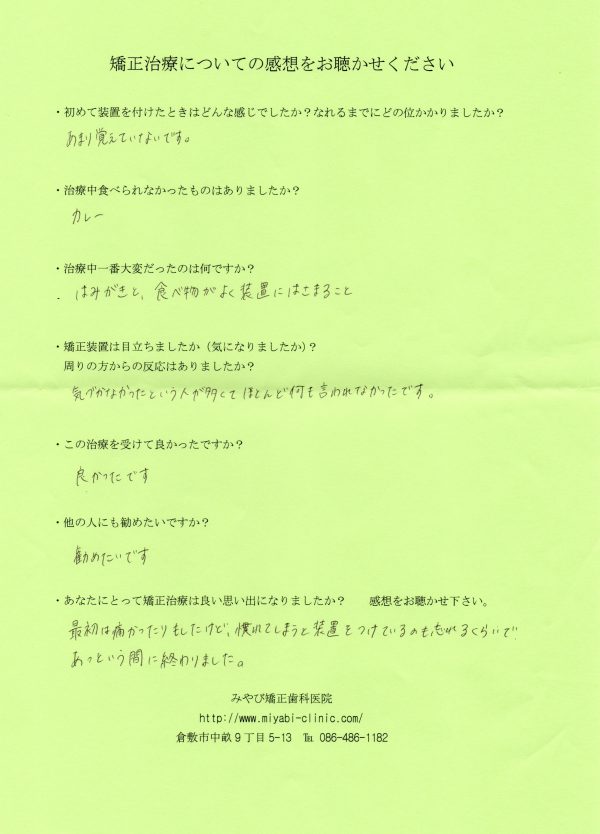 矯正治療についての感想をお聴かせください
・初めて装置を付けたときはどんな感じでしたか？なれるまでにどの位かかりましたか？
あまり覚えていないです。
・治療中食べられなかったものはありましたか？
カレー
・治療中一番大変だったのは何ですか？
. はみがきと、食べ物がよく装置にはさまること
・矯正装置は目立ちましたか（気になりましたか）？
周りの方からの反応はありましたか？
気づかなかったという人が多くてほとんど何も言われなかったです。
・この治療を受けて良かったですか？
良かったです
・他の人にも勧めたいですか？
勧めたいです
・あなたにとって矯正治療は良い思い出になりましたか？　感想をお聴かせ下さい。
最初は痛かったりもしたけど、慣れてしまうと装置をつけているのも忘れるくらいで
あっという間に終わりました。
みやび矯正歯科医院
http://www.miyabi-clinic.com/
倉敷市中畝９丁目 5-13　℡ 086-486-1182